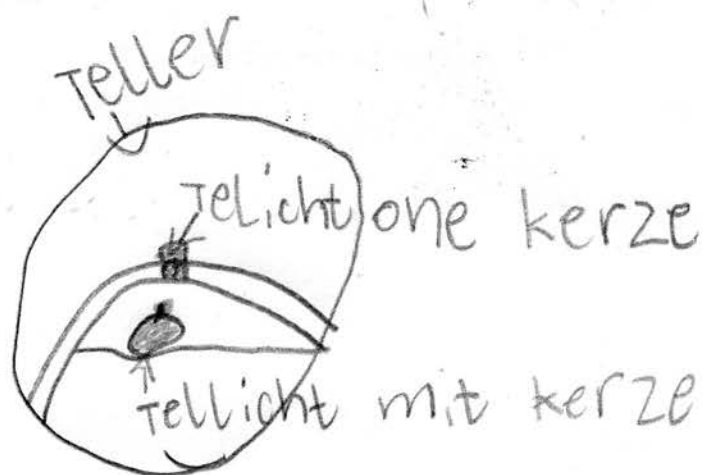 Teller
Telicht one kerze
Tellicht mit kerze